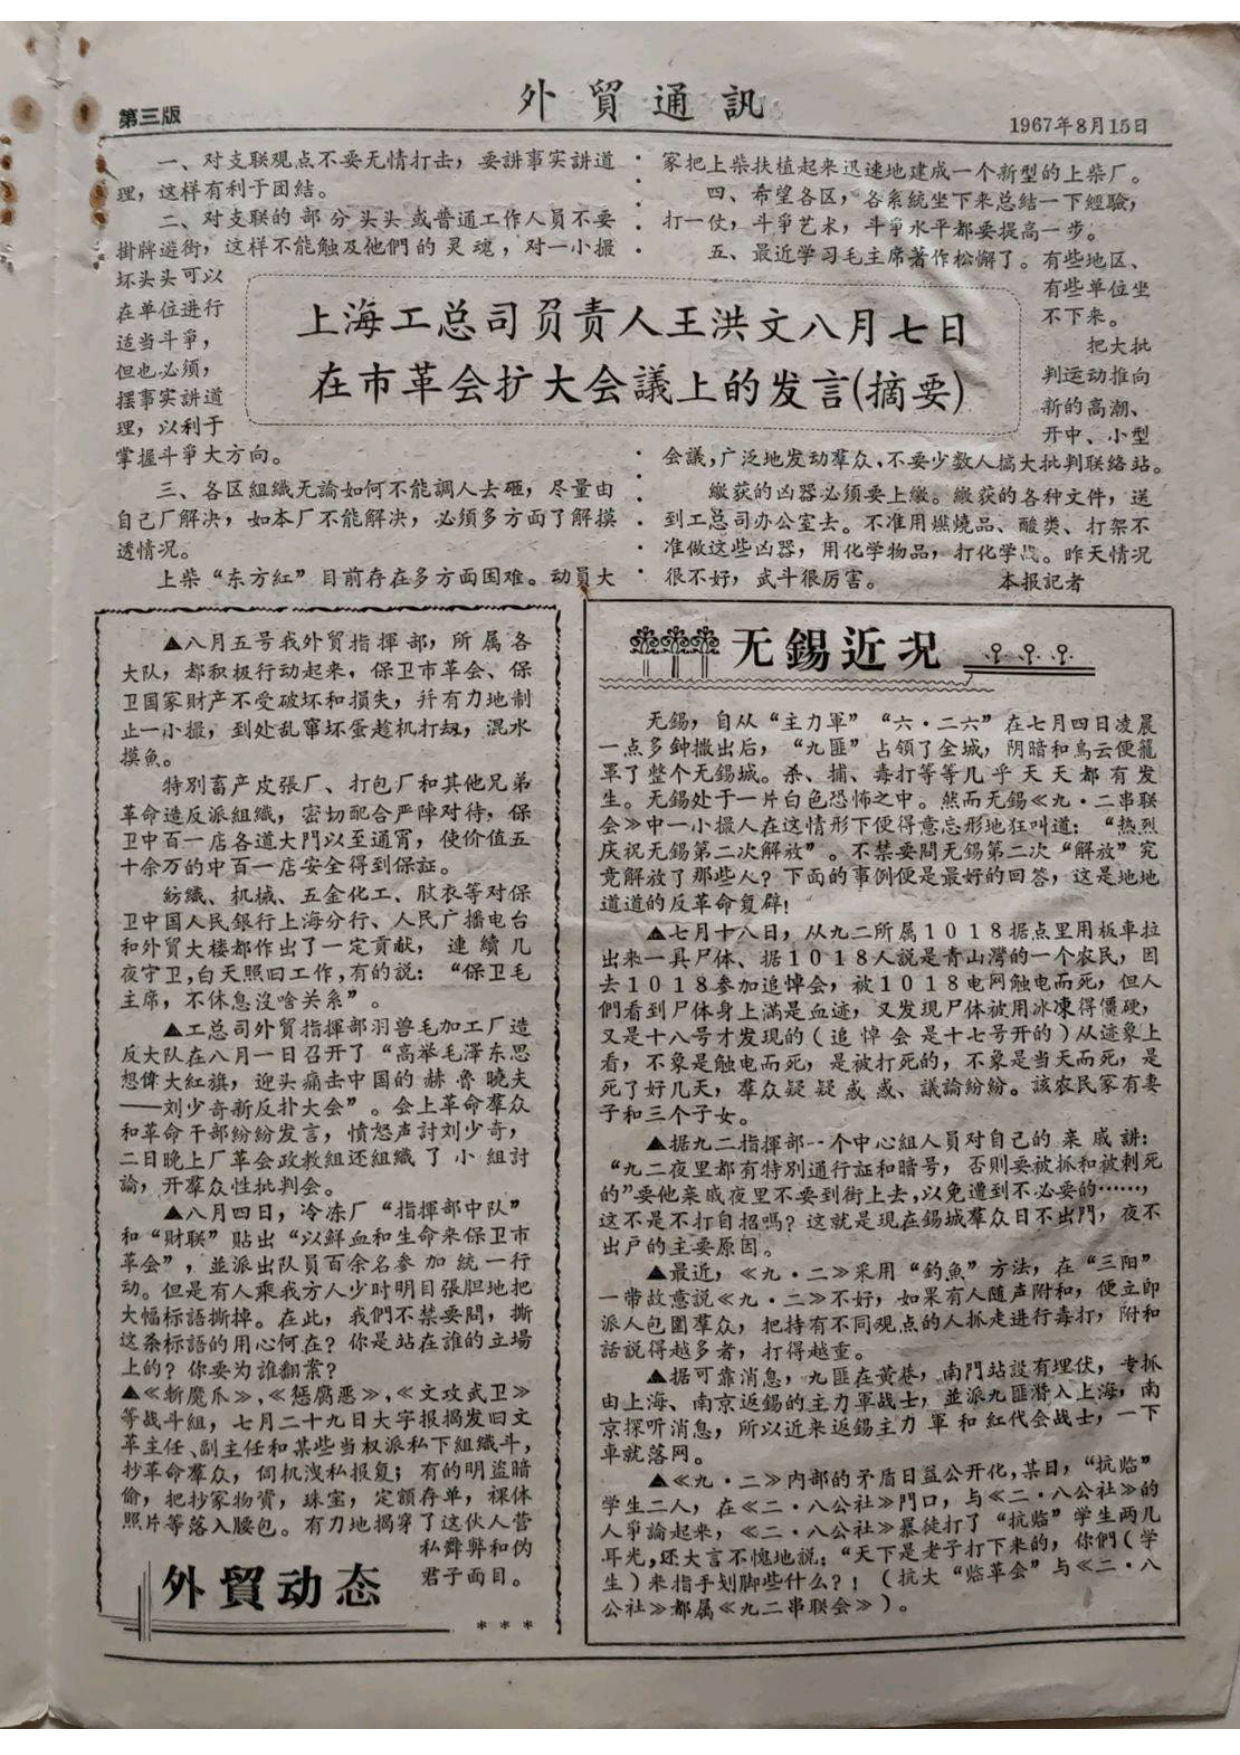 第三版
外貿通訊
1967年8月15日
上海工总司负责人王洪文八月七日
在市革会扩大会議上的发言(摘要)
一、对支联观点不要无情打击，要讲事实讲道
理，这样有利于团结。
二、对支联的部分头头或普通工作人员不要
掛牌遊街，这样不能触及他們的灵魂，对一小撮
坏头头可以
在单位进行
适当斗爭，
但也必须，
摆事实講道
理，以利于
掌握斗爭大方向。
三、各区組織无論如何不能調人去砸，尽量由
自己厂解决，如本厂不能解决，必須多方面了解摸
透情况。
上柴“东方紅”目前存在多方面困难。动員大
家把上柴扶植起来迅速地建成一个新型的上柴厂。
四、希望各区，各系統坐下来总结一下經驗，
打一仗，斗爭艺术，斗爭水平都要提高一步。
五、最近学习毛主席著作松懈了。有些地区、
有些单位坐
不下来。
把大批
判运动推向
新的高潮、
开中、小型
会議，广泛地发动羣众，不要少数人搞大批判联絡站。
繳获的凶器必须要上繳。繳获的各种文件，送
到工总司办公室去。不准用燃燒品、酸类、打架不
准做这些凶器，用化学物品，打化学战。昨天情况
很不好，武斗很厉害。
本报記者
▲八月五号我外貿指揮部，所属各
大队，都积极行动起来，保卫市革会、保
卫国家財产不受破坏和損失，幷有力地制
止一小撮，到处乱竄坏蛋趁机打劫，混水
摸魚。
特別畜产皮張厂、打包厂和其他兄弟
革命造反派組織，密切配合严陣对待，保
卫中百一店各道大門以至通宵，使价值五
十余万的中百一店安全得到保証。
紡織、机械、五金化工、肷衣等对保
卫中国人民銀行上海分行、人民广播电台
和外貿大楼都作出了一定貢献，連續几
夜守卫，白天照旧工作，有的説：“保卫毛
主席，不休息沒啥关系”。
▲工总司外貿指揮部羽兽毛加工厂造
反大队在八月一日召开了“高举毛澤东思
想偉大紅旗，迎头痛击中国的赫魯曉夫
——刘少奇新反扑大会”。会上革命羣众
和革命干部紛紛发言，愤怒声討刘少奇，
二日晚上厂革会政教組还組織了小組討
論，开羣众性批判会。
▲八月四日，冷冻厂“指揮部中队”
和“財联”貼出“以鮮血和生命来保卫市
革会”，並派出队員百余名参加統一行
动。但是有人乘我方人少时明目張胆地把
大幅标語撕掉。在此，我們不禁要問，撕
这条标語的用心何在？你是站在誰的立場
上的？你要为誰翻案？
▲≪斩魔爪≫，≪惩腐恶≫，≪文攻武卫≫
等战斗組，七月二十九日大字报揭发旧文
革主任、副主任和某些当权派私下組織斗，
抄革命羣众，伺机洩私报复；有的明盜暗
偷，把抄家物資，珠宝，定额存单，裸体
照片等落入腰包。有力地揭穿了这伙人营
私舞弊和伪
君子面目。
外貿动态
＊＊＊
无錫近况
无錫，自从“主力軍”“六·二六”在七月四日凌晨
一点多鈡撤出后，“九匪”占領了全城，阴暗和烏云便籠
罩了整个无錫城。杀、捕、毒打等等几乎天天都有发
生。无錫处于一片白色恐怖之中。然而无錫≪九·二串联
会≫中一小撮人在这情形下便得意忘形地狂叫道：“热烈
庆祝无錫第二次解放”。不禁要問无錫第二次“解放”究
竟解放了那些人？下面的事例便是最好的回答，这是地地
道道的反革命复辟！
▲七月十八日，从九二所属1018据点里用板車拉
出来一具尸体、据1018人説是青山灣的一个农民，因
去1018参加追悼会，被1018电网触电而死，但人
們看到尸体身上滿是血迹，又发现尸体被用冰凍得僵硬，
又是十八号才发現的（追悼会是十七号开的）从迹象上
看，不象是触电而死，是被打死的，不象是当天而死，是
死了好几天，羣众疑疑惑惑、議論紛紛。該农民家有妻
子和三个子女。
▲据九二指揮部一个中心組人员对自己的亲戚讲：
“九二夜里都有特別通行証和暗号，否则要被抓和被刺死
的”要他亲戚夜里不要到街上去，以免遭到不必要的……，
这不是不打自招嗎？这就是現在錫城羣众日不出門，夜不
出戶的主要原因。
▲最近，≪九·二≫采用“釣魚”方法，在“三阳”
一带故意説≪九·二≫不好，如果有人随声附和，便立即
派人包圍羣众，把持有不同观点的人抓走进行毒打，附和
話説得越多者，打得越重。
▲据可靠消息，九匪在黄巷，南門站設有埋伏，专抓
由上海、南京返錫的主力軍战士，並派九匪潜入上海，南
京探听消息，所以近来返錫主力軍和紅代会战士，一下
車就落网。
▲≪九·二≫内部的矛盾日益公开化，某日，“抗临”
学生二人，在≪二·八公社≫門口，与≪二·八公社≫的
人爭論起来，≪二·八公社≫暴徒打了“抗临”学生两几
耳光，还大言不愧地説：“天下是老子打下来的，你們（学
生）来指手划脚些什么？！（抗大“临革会”与≪二·八
公社≫都属≪九二串联会≫）。